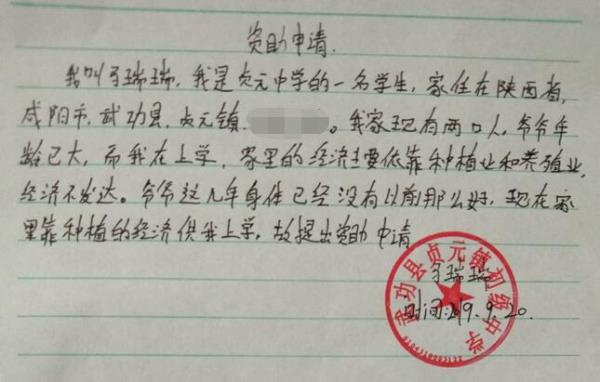 资助申请.
我叫弓瑞瑞,我是贞元中学的一名学生,家住在陕西省,
咸阳市,武功县,贞元镇,。我家现有两口人,爷爷年
龄已大,而我在上学,家里的经济主要依靠种植业和养殖业,
经济不发达。爷爷这几年身体已经没有以前那么好,现在家
里靠种植的经济供我上学,故提出资助申请
弓瑞瑞
时间:19.9.20.
武功县贞元镇初级中学